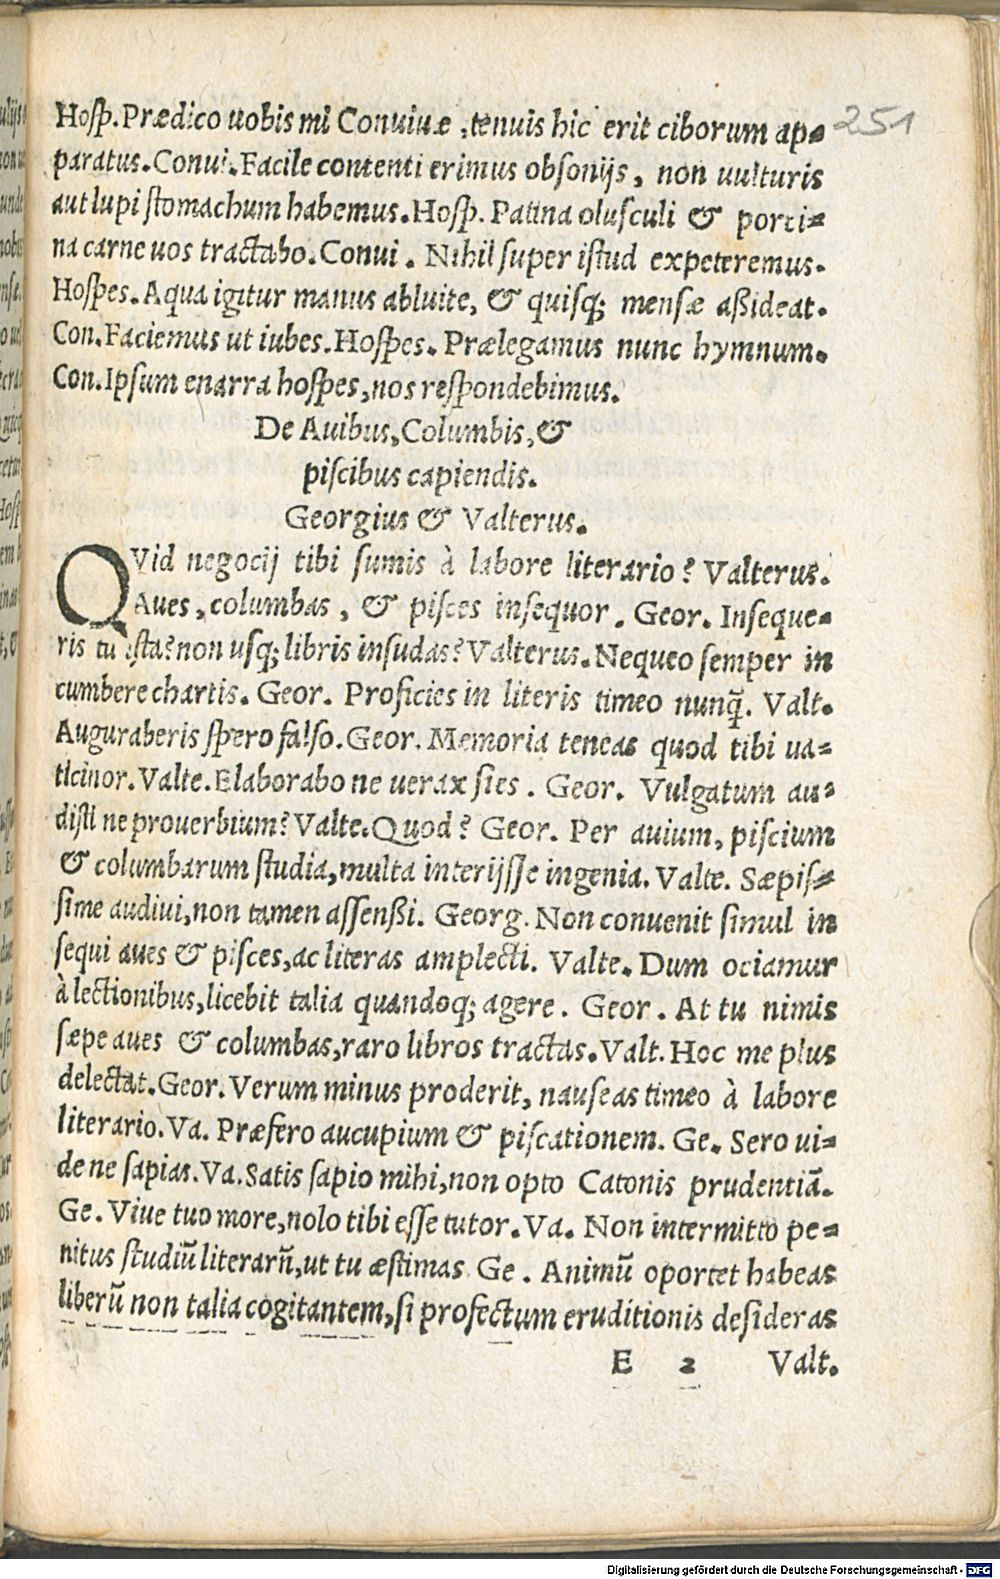 251
Hosp. Prædico uobis mi Conuiuæ, tenuis hic erit ciborum ap-
paratus. Conui. Facile contenti erimus obsonijs, non uulturis
aut lupi stomachum habemus. Hosp. Patina olusculi & porci-
na carne uos tractabo. Conui. Nihil super istud expeteremus.
Hospes. Aqua igitur manus abluite, & quisq; mensæ aßideat.
Con. Faciemus ut iubes. Hospes. Prælegamus nunc hymnum.
Con. Ipsum enarra hospes, nos respondebimus.
De Auibus, Columbis, &
piscibus capiendis.
Georgius & Valterus.
QVid negocij tibi sumis à labore literario? Valterus.
Aues, columbas, & pisces insequor. Geor. Inseque-
ris tu ista? non usq; libris insudas? Valterus. Nequeo semper in
cumbere chartis. Geor. Proficies in literis timeo nunq̃. Valt.
Auguraberis spero falso. Geor. Memoria teneas quod tibi ua-
ticinor. Valte. Elaborabo ne uerax sies. Geor. Vulgatum au-
disti ne prouerbium? Valte. Quod? Geor. Per auium, piscium
& columbarum studia, multa interijsse ingenia. Valte. Sæpis-
sime audiui, non tamen assensßi. Georg. Non conuenit simul in
sequi aues & pisces, ac literas amplecti. Valte. Dum ociamur
à lectionibus, licebit talia quandoq; agere. Geor. At tu nimis
sæpe aues & columbas, raro libros tractas. Valt. Hoc me plus
delectat. Geor. Verum minus proderit, nauseas timeo à labore
literario. Va. Præfero aucupium & piscationem. Ge. Sero ui-
de ne sapias. Va. Satis sapio mihi, non opto Catonis prudentiã.
Ge. Viue tuo more, nolo tibi esse tutor. Va. Non intermitto pe-
nitus studiũ literarũ, ut tu æstimas Ge. Animũ oportet habeas
liberũ non talia cogitantem, si profectum eruditionis desideras
E 2 Valt.
Digitalisierung gefördert durch die Deutsche Forschungsgemeinschaft - DFG